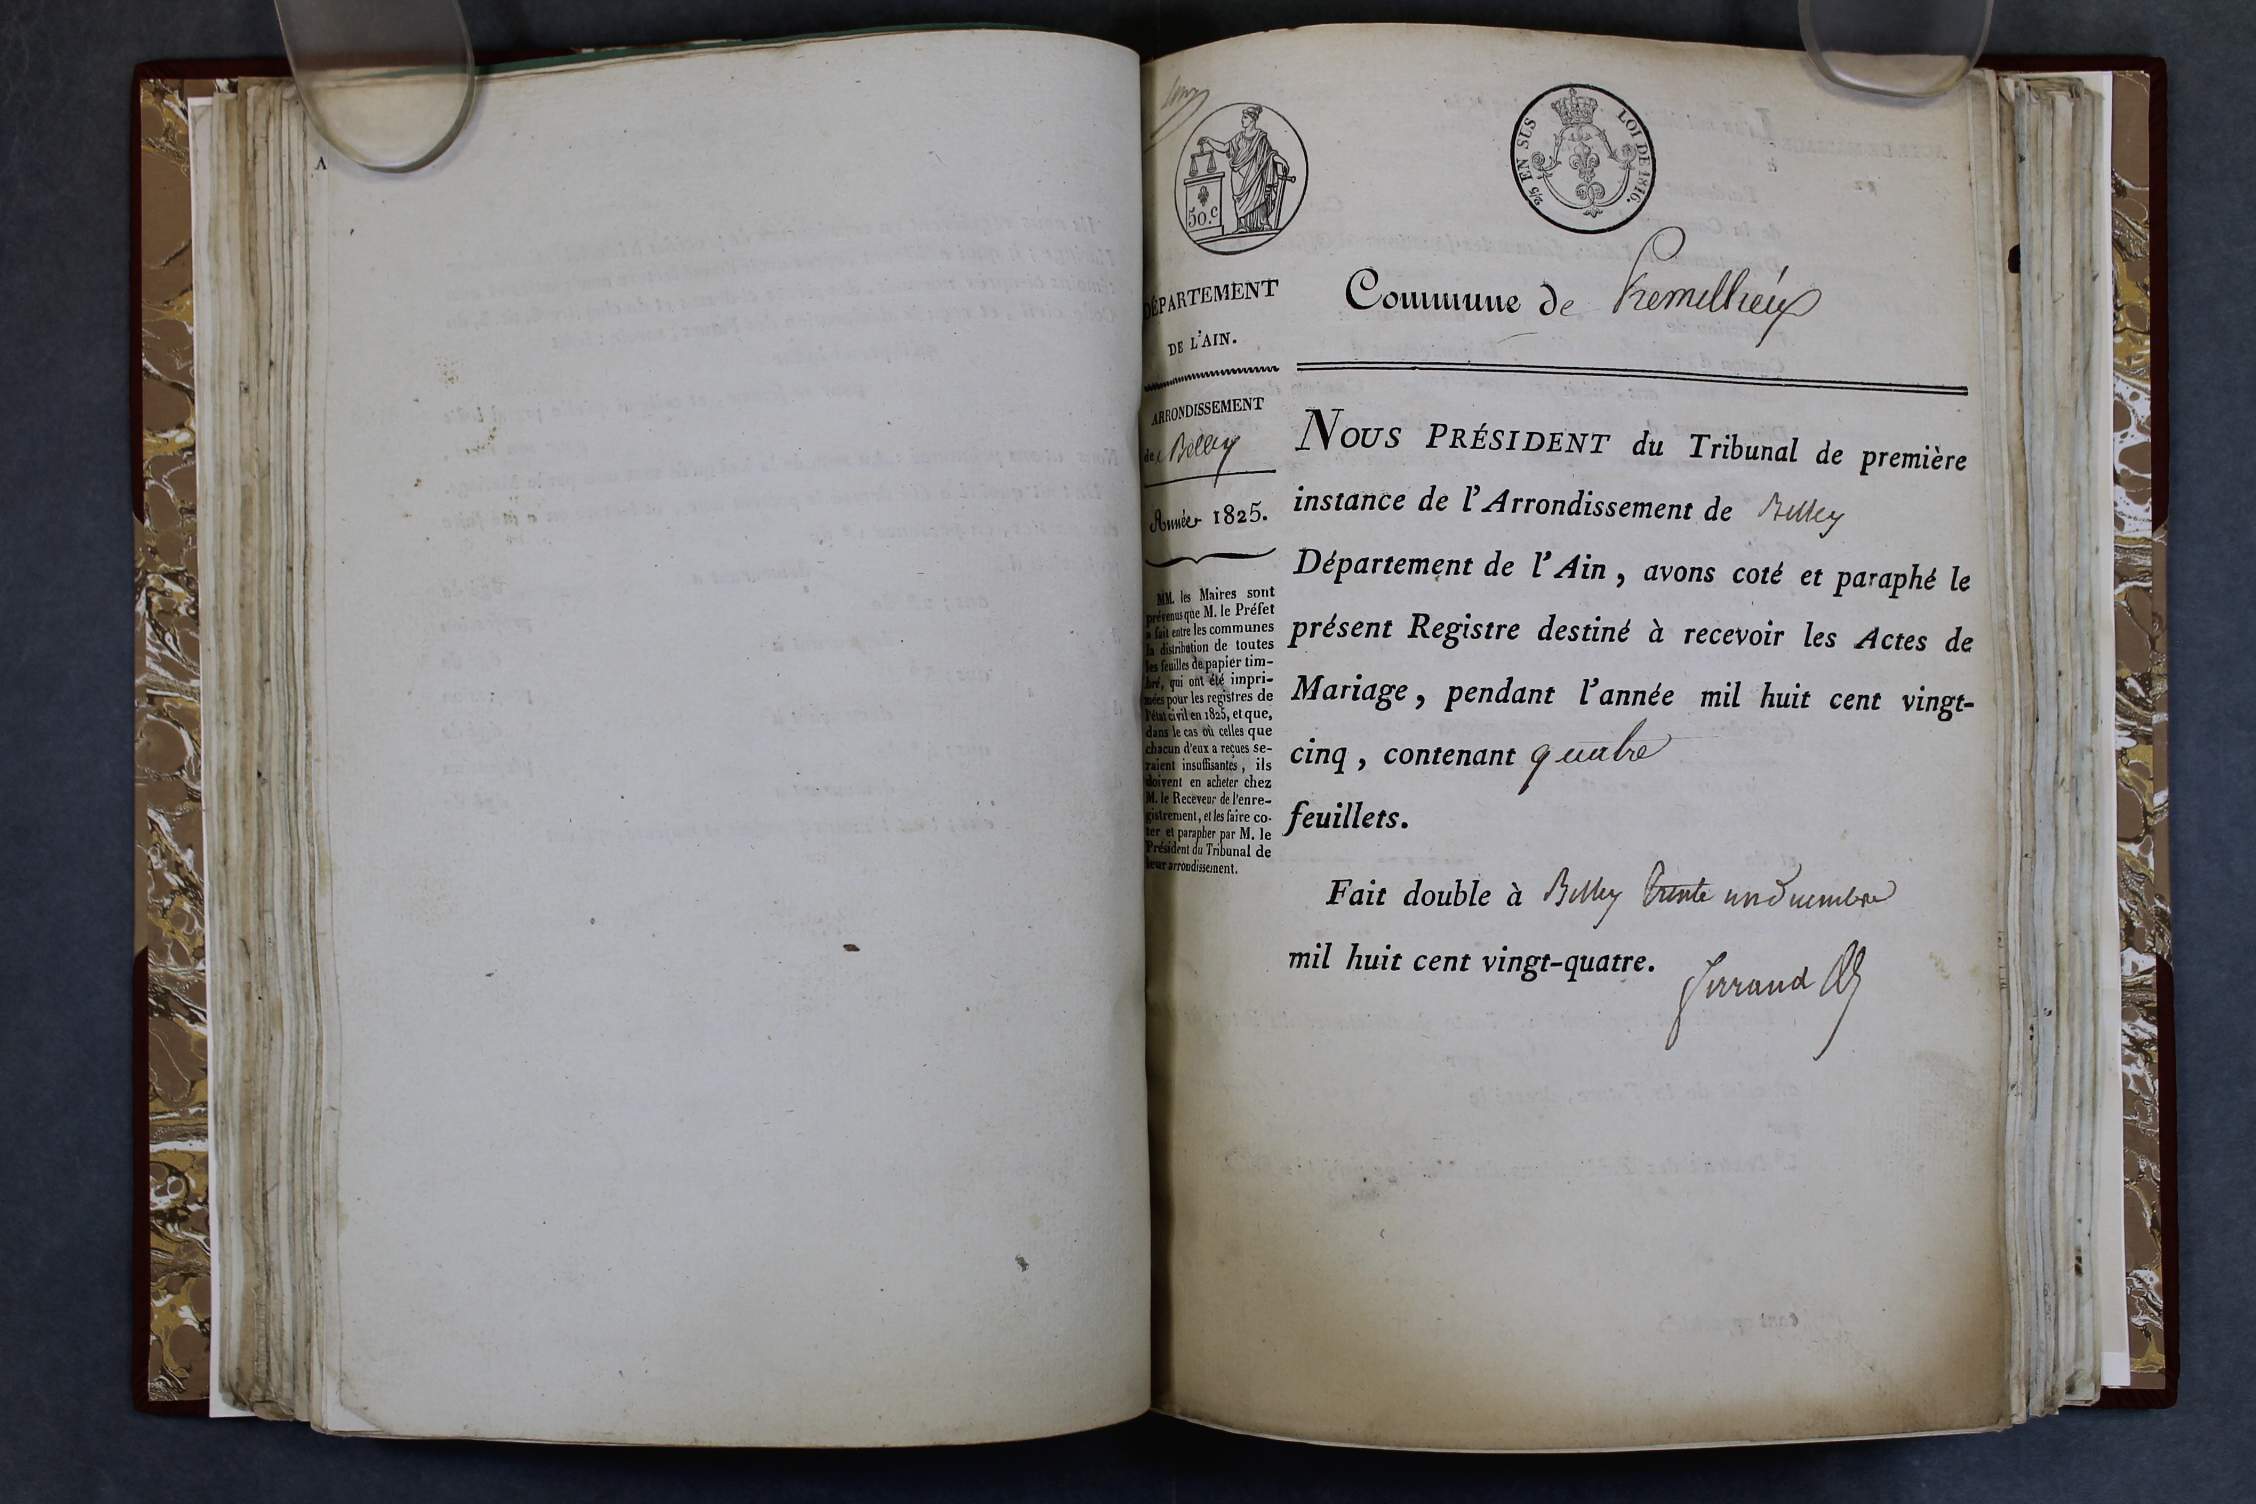 A
50.c
2/5 EN SUS LOI DE 1816.
DÉPARTEMENT
DE L'AIN.
ARRONDISSEMENT
de Belley
Année 1825.
MM. les Maires sont
prévenus que M. le Préfet
a fait entre les communes
la distribution de toutes
les feuilles de papier tim-
bré, qui ont été impri-
mées pour les registres de
l'état civil en 1825, et que,
dans le cas où celles que
chacun d'eux a reçues se-
raient insuffisantes, ils
doivent en acheter chez
M. le Receveur de l'enre-
gistrement, et les faire co-
ter et parapher par M. le
Président du Tribunal de
leur arrondissement.
Commune de Premillieu
NOUS PRÉSIDENT du Tribunal de première
instance de l'Arrondissement de Belley
Département de l'Ain, avons coté et paraphé le
présent Registre destiné à recevoir les Actes de
Mariage, pendant l'année mil huit cent vingt-
cinq, contenant quatre
feuillets.
Fait double à Belley trente un décembre
mil huit cent vingt-quatre.